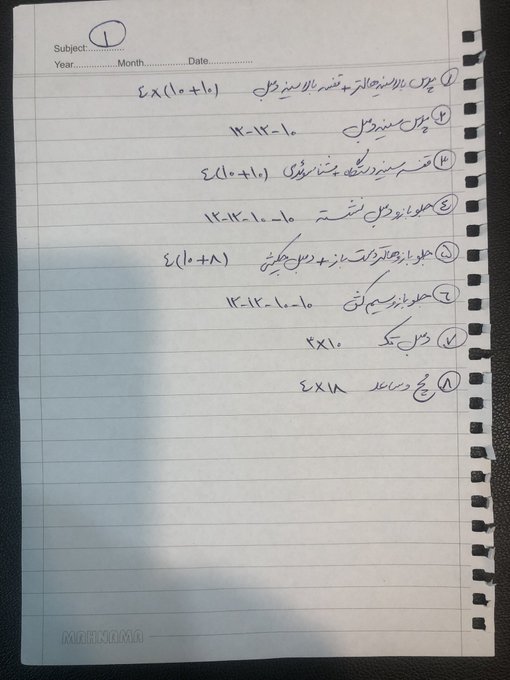 Subject:............... ①
Year............... Month............... Date...............
① پرس بالا سینه هالتر + قفسه بالا سینه دمبل ٤×(۱۰+۱۰)
② پرس سینه دمبل ۱۲-۱۲-۱۰
③ قفسه سینه دستگاه + شنا سوئدی ٤(۱۰+۱۰)
④ جلو بازو دمبل نشسته ۱۲-۱۲-۱۰-۱۰
⑤ جلو بازو هالتر دست باز + دمبل چکشی ٤(۱۰+۸)
⑥ جلو بازو سیم کش ۱۲-۱۲-۱۰-۱۰
⑦ دمبل تک ۳×۱۰
⑧ مچ و ساعد ٤×۱۸
MAHNAMA